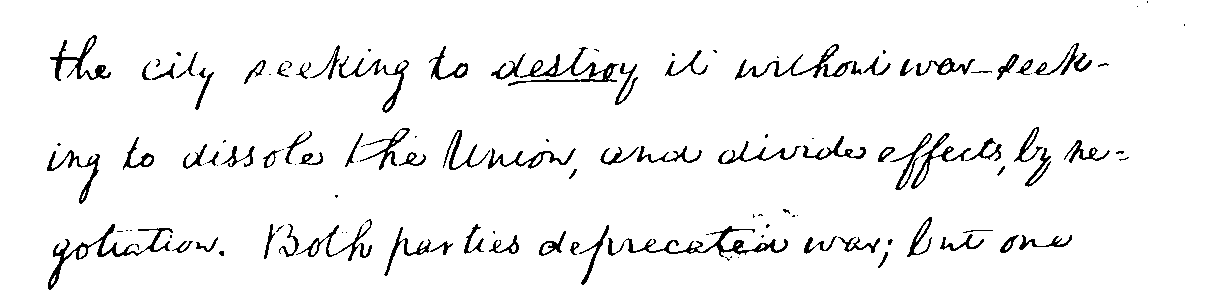 the city seeking to destroy it without war—seek-
ing to dissole the Union, and divide effects, by ne=
gotiation. Both parties deprecated war; but one